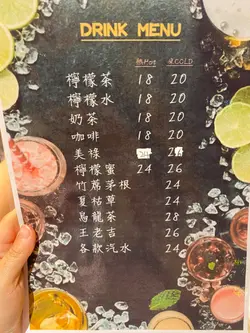 DRINK MENU
熱HOT 凍COLD
檸檬茶 18 20
檸檬水 18 20
奶茶 18 20
咖啡 18 20
美祿
檸檬蜜 24 26
竹蔗茅根 24
夏枯草 24
烏龍茶 28
王老吉 26
各款汽水 24